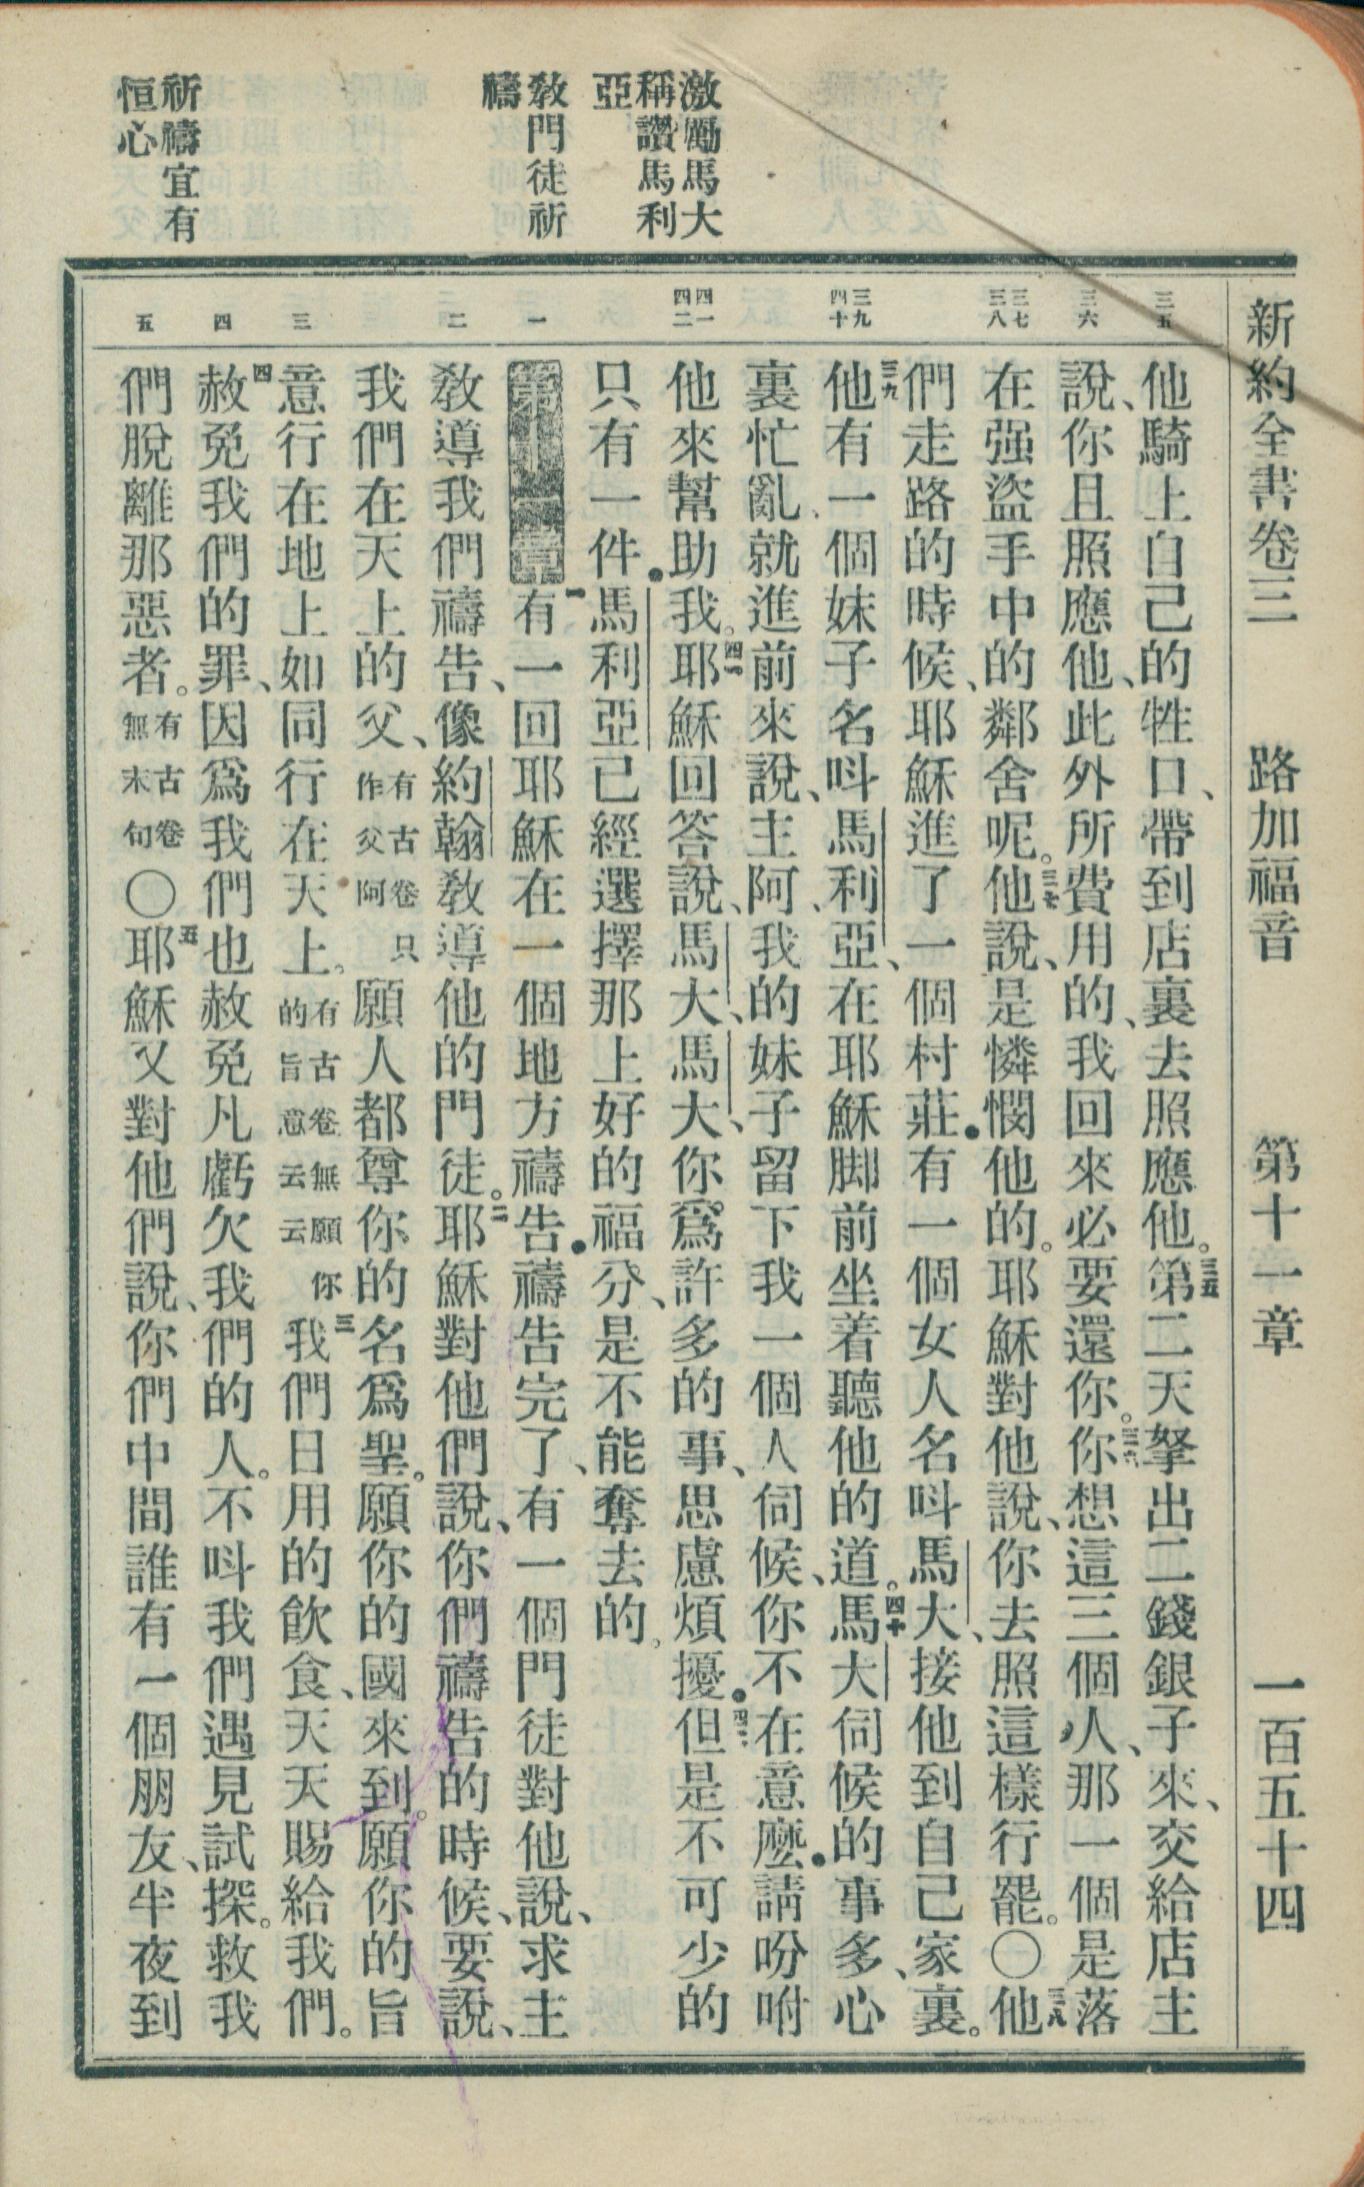 新約全書卷三　路加福音　第十一章　一百五十四
激勵馬大
稱讚馬利
亞
敎門徒祈
禱
祈禱宜有
恒心
三五
三六
三七
三八
三九
四十
四一
四二
一
二
三
四
五
他騎上自己的牲口、帶到店裏去照應他。三五第二天拏出二錢銀子來、交給店主
說、你且照應他、此外所費用的、我回來必要還你。三六你想這三個人、那一個是落
在强盜手中的鄰舍呢。三七他說、是憐憫他的。耶穌對他說、你去照這樣行罷。〇三八他
們走路的時候、耶穌進了一個村莊．有一個女人名呌馬大、接他到自己家裏。
三九他有一個妹子名呌馬利亞、在耶穌脚前坐着聽他的道。四十馬大伺候的事多、心
裏忙亂、就進前來說、主阿、我的妹子留下我一個人伺候、你不在意麼．請吩咐
他來幫助我。四一耶穌回答說、馬大、馬大、你爲許多的事、思慮煩擾．四二但是不可少的
只有一件．馬利亞已經選擇那上好的福分、是不能奪去的。
第十一章　一有一回耶穌在一個地方禱告．禱告完了、有一個門徒對他說、求主
敎導我們禱告、像約翰敎導他的門徒。二耶穌對他們說、你們禱告的時候、要說、
我們在天上的父、有古卷只作父阿願人都尊你的名爲聖。願你的國來到。願你的旨
意行在地上如同行在天上。有古卷無願你的旨意云云三我們日用的飲食、天天賜給我們。
四赦免我們的罪、因爲我們也赦免凡虧欠我們的人。不呌我們遇見試探。救我
們脫離那惡者。有古卷無末句〇五耶穌又對他們說、你們中間誰有一個朋友、半夜到